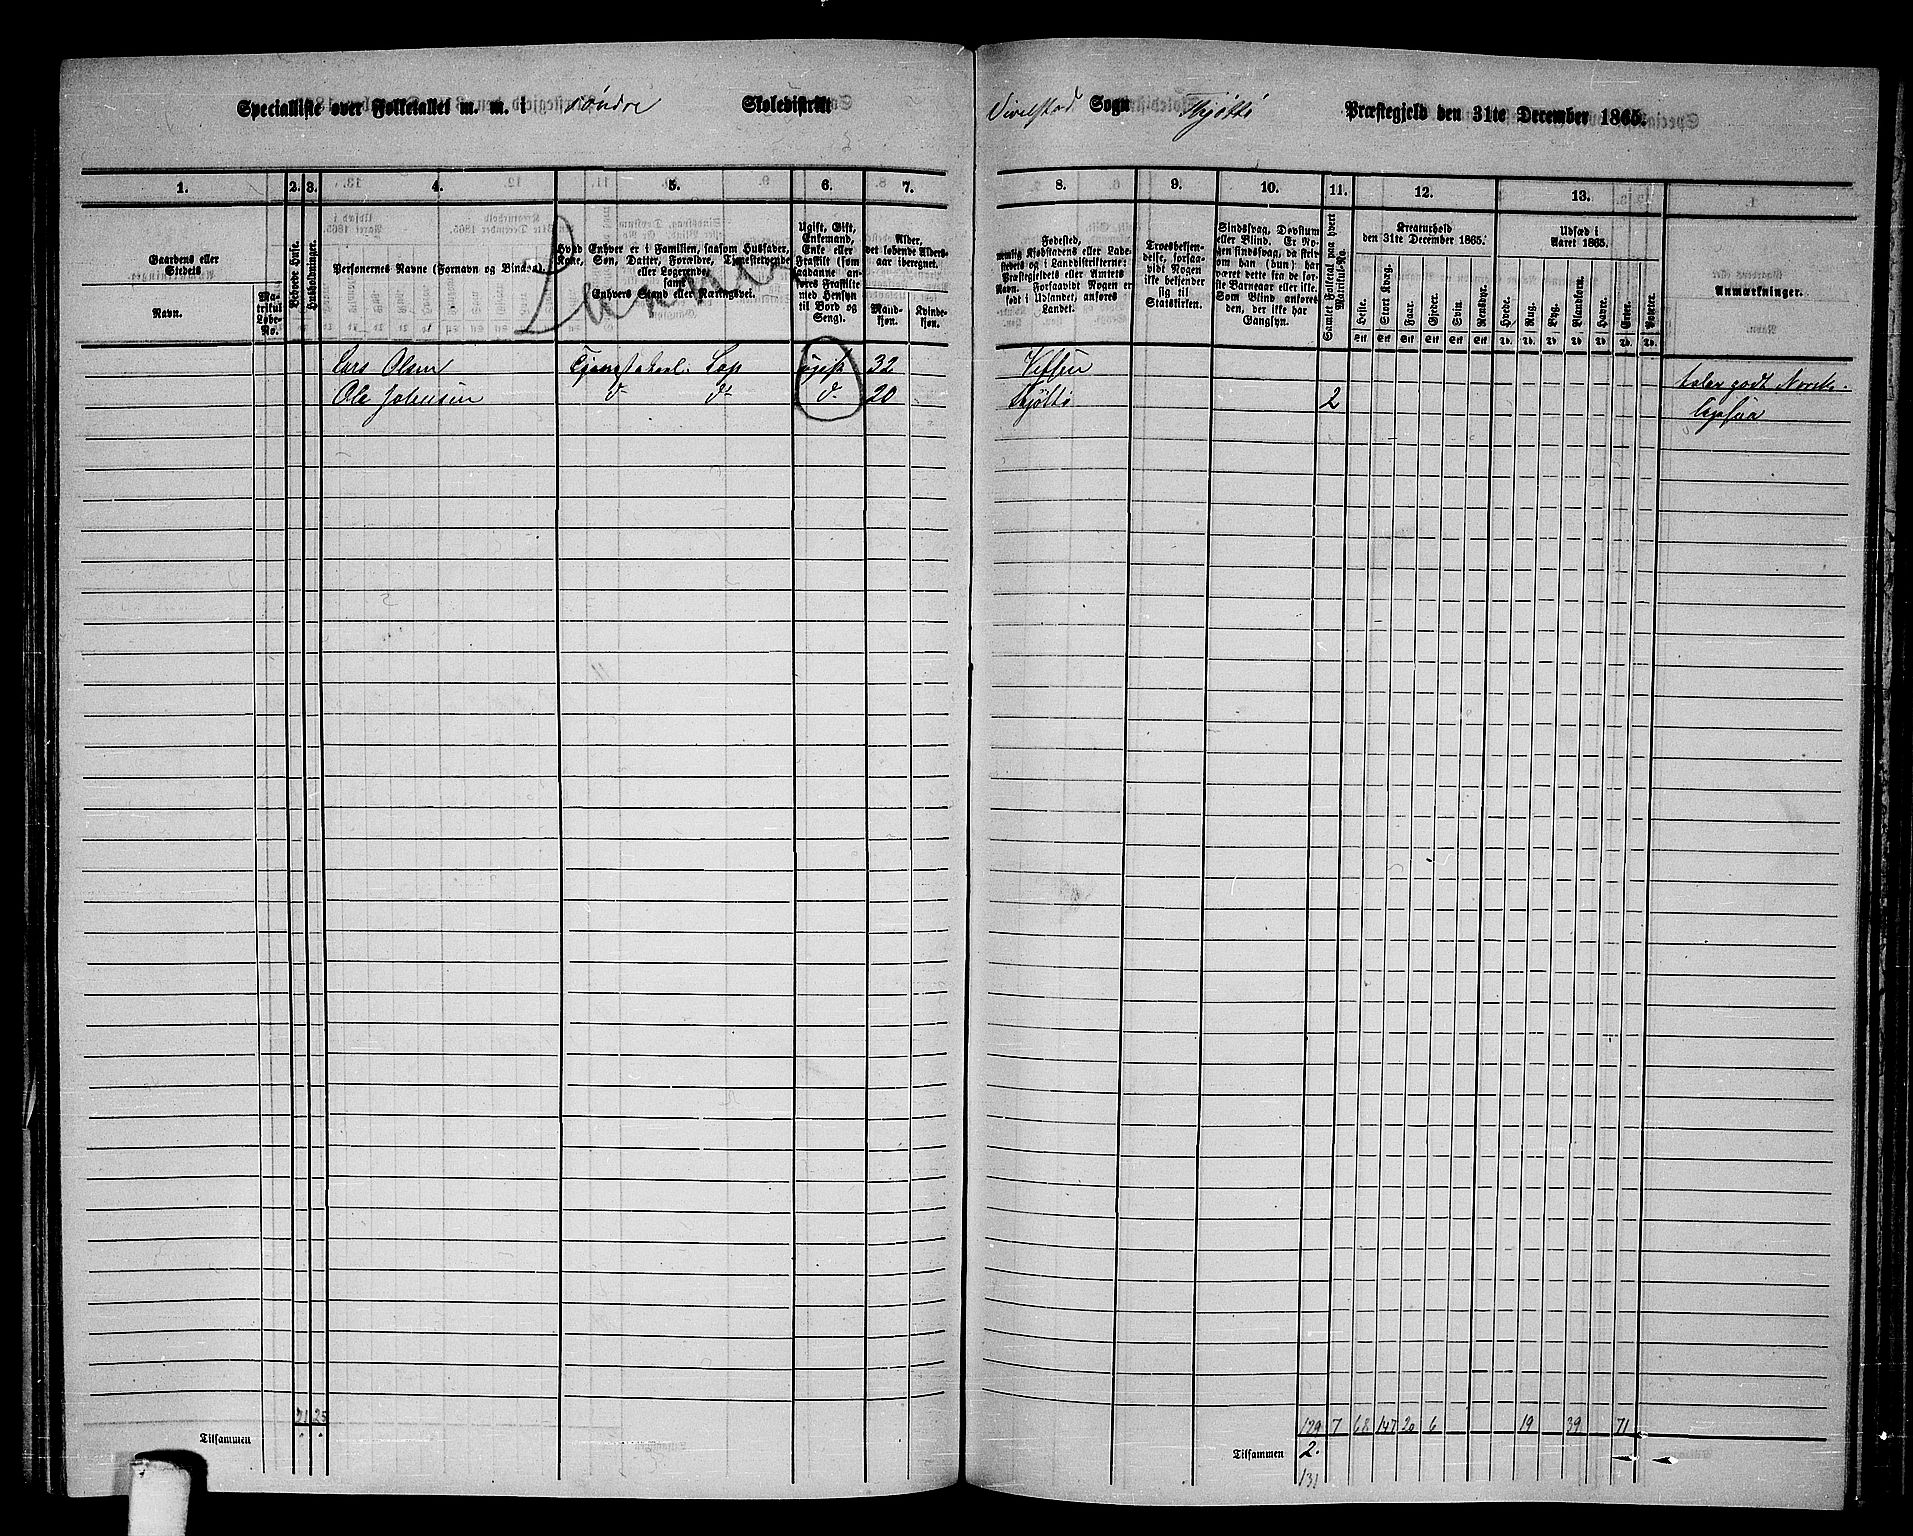 Specialliste over Folketallet m. m. i Søndre Skoledistrikt
Vivelstad Sogn Thjøttø Præstegjeld den 31te December 1865.
1. 2. 3. 4. 5. 6. 7.
Gaardens eller Stedets
Navn.
Matrikul Løbe-No.
Beboede Huse.
Husholdninger.
Personernes Navne (Fornavn og Binavn).
Hvad Enhver er i Familien, saasom Husfader, Kone, Søn, Datter, Forældre, Tjenestetyende eller Logerende,
samt
Enhvers Stand eller Næringsvei.
Ugift, Gift, Enkemand, Enke eller Fraskilt (som saadanne anføres Fraskilte med Hensyn til Bord og Seng).
Alder, det løbende Aldersaar iberegnet.
Mandkjøn.
Kvindekjøn.
8. 9. 10. 11. 12. 13.
Fødested,
nemlig Kjøbstadens eller Ladestedets og i Landdistrikterne: Præstegjeldets eller Amtets Navn. Forsaavidt Nogen er født i Udlandet, anføres Landet.
Troesbekjendelse, forsaavidt Nogen ikke bekjender sig til Statskirken.
Sindssvag, Døvstum eller Blind. Er Nogen sindssvag, da skrives om han (hun) har været dette fra de første Barneaar eller ikke. Som Blind anføres den, der ikke har Gangsyn.
Samlet Folketal paa hvert Matrikul-No.
Kreaturhold
den 31te December 1865.
Heste. Stort Kvæg. Faar. Gjeder. Svin. Rensdyr.
Udsæd i
Aaret 1865.
Hvede. Rug. Byg. Blandkorn. Havre. Erter. Poteter.
Anmærkninger.
Lars Olsen Lap ugift 32
Ole Johnsen d. d. d. 20 Thjøttø 2
taler godt Norsk.
21 25
Tilsammen
129 7 147 20 6 19 39 71
Tilsammen 2.
131